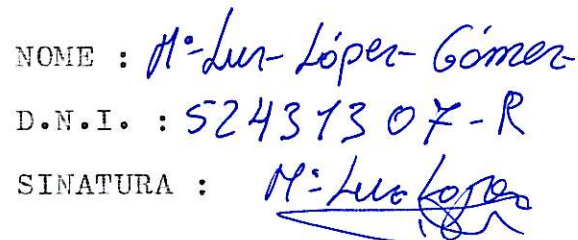 NOME : Mª Luz López Gómez
D.N.I. : 52431307-R
SINATURA : Mª Luz López